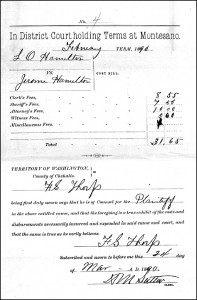 No. 4
In District Court holding Terms at Montesano.
February TERM, 1890.
L O Hamilton
VS.
COST BILL.
Jerome Hamilton
Clerk's Fees, 8 55
Sheriff's Fees,
Attorney's Fees,
Witness Fees,
Miscellaneous Fees,
Total, 31.65
TERRITORY OF WASHINGTON,
County of Chehalis.
F S Thorp
being first duly sworn says that he is of Counsel for the Plaintiff
in the above entitled cause, and that the foregoing is a true exhibit of the costs and
disbursements necessarily incurred and expended in said cause and court, and
that the same is true as he verily believes.
F S Thorp
Subscribed and sworn to before me this 24 day
of Mar A. D. 1890.